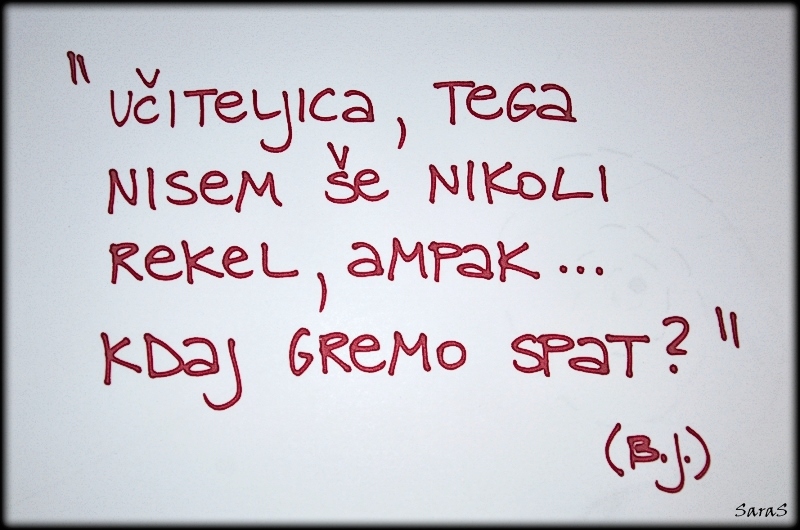 "UČITELJICA, TEGA
NISEM ŠE NIKOLI
REKEL, AMPAK...
KDAJ GREMO SPAT?"
(B.J.)
SaraS